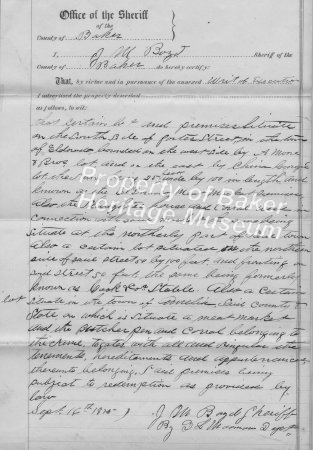 Office of the Sheriff
of the
County of Baker
I, J M Boyd Sheriff of the
County of Baker do hereby certify:
That, by virtue and in pursuance of the annexed Writ of Execution
I attached the property described
as follows, to-wit:
That certain lot and premises situate
on the South Side of Street, in the town
of Eldorado bounded on the west side by A
& Bros lot and on the east by
lot the same being 25 feet by 100 in length and
known as the
also the Slaughter house and Corral used in
connection with same being
situate at the northerly part of said town
also a certain lot situated on the northern
side of same street 50 by 100 feet and fronting on
said Street 50 feet, the same being formerly
known as Cook & Co Stable. Also a Certain
lot situate in the town of Amelia Said County &
State on which is situate a meat market
and the butcher pen and Corral belonging to
the same, together with all and singular the
tenements, hereditaments and appurtenances
thereto belonging. Said premises being
subject to redemption as provided by
law
Sept. 16th J M Boyd Sheriff
By Depty
Property of Baker
Heritage Museum